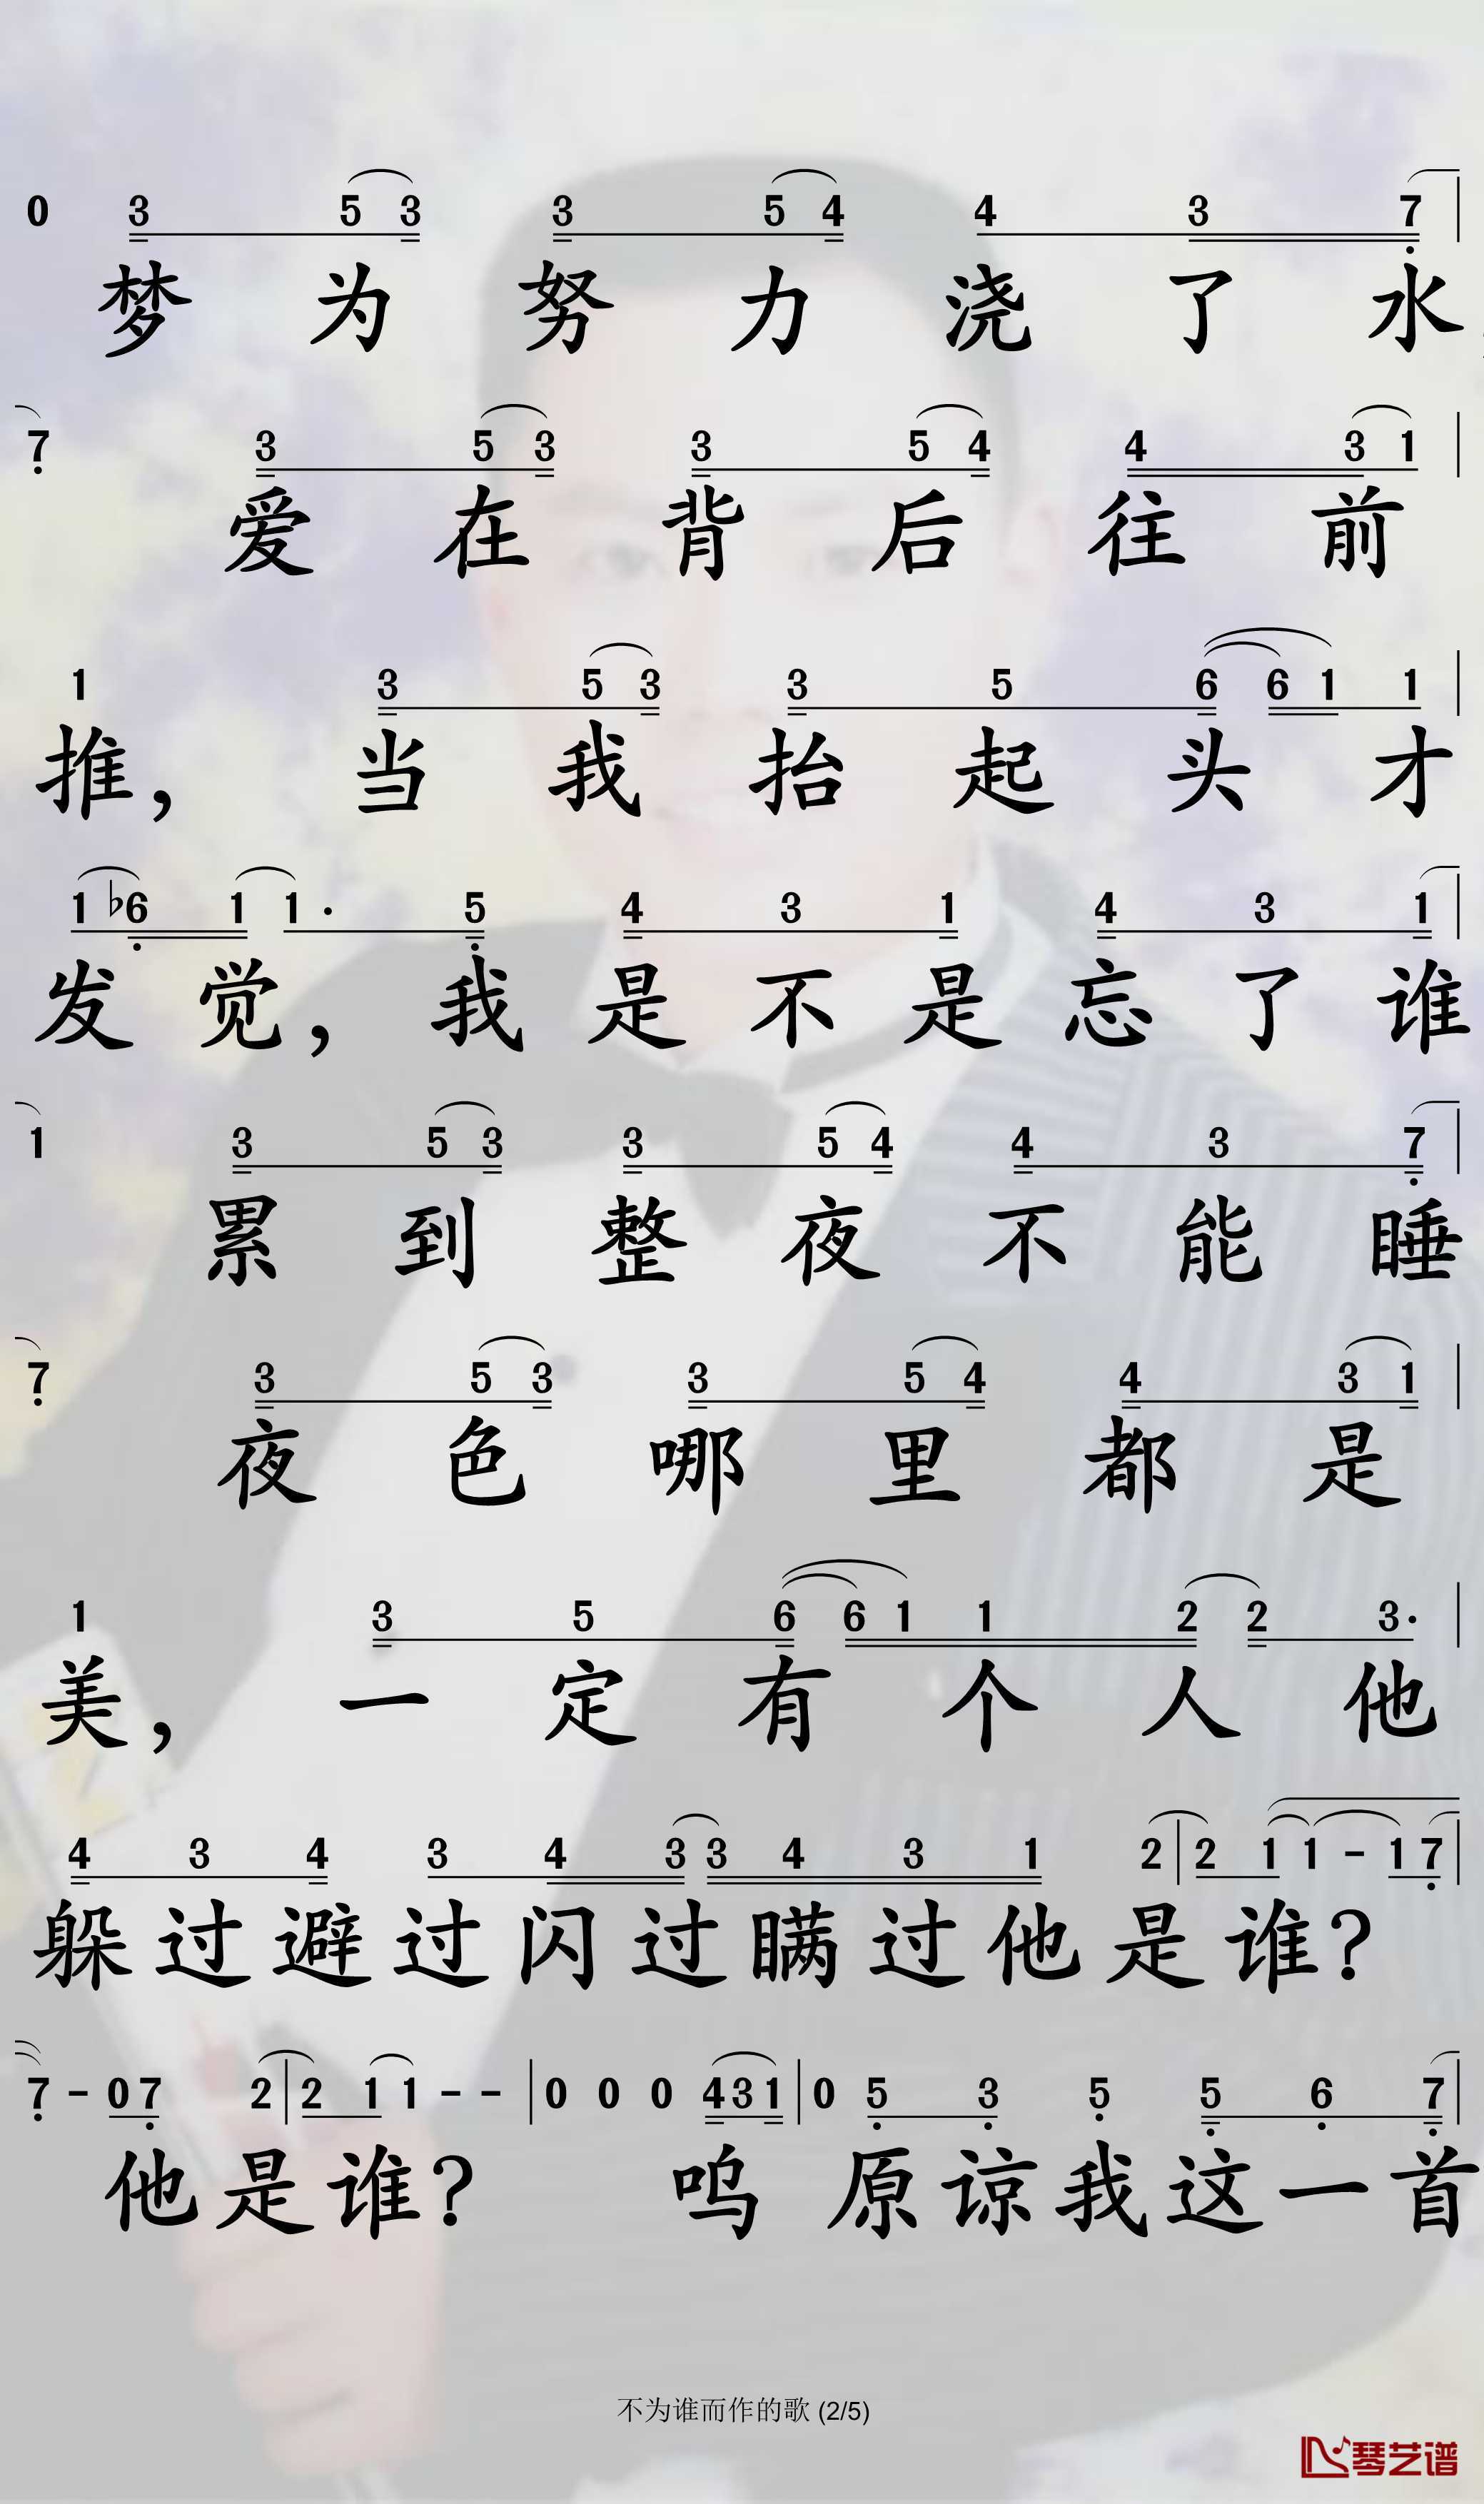 0 3 5 3 3 5 4 4 3 7
梦为努力浇了水
7 3 5 3 3 5 4 4 3 1
爱在背后往前
1 3 5 3 3 5 6 6 1 1
推，当我抬起头才
1 ♭6 1 1· 5 4 3 1 4 3 1
发觉，我是不是忘了谁
1 3 5 3 3 5 4 4 3 7
累到整夜不能睡
7 3 5 3 3 5 4 4 3 1
夜色哪里都是
1 3 5 6 6 1 1 2 2 3·
美，一定有个人他
4 3 4 3 4 3 3 4 3 1 2 | 2 1 1 – 1 7
躲过避过闪过瞒过他是谁？
7 – 0 7 2 | 2 1 1 – – | 0 0 0 4 3 1 | 0 5 3 5 5 6 7
他是谁？ 呜 原谅我这一首
不为谁而作的歌 (2/5)
琴艺谱